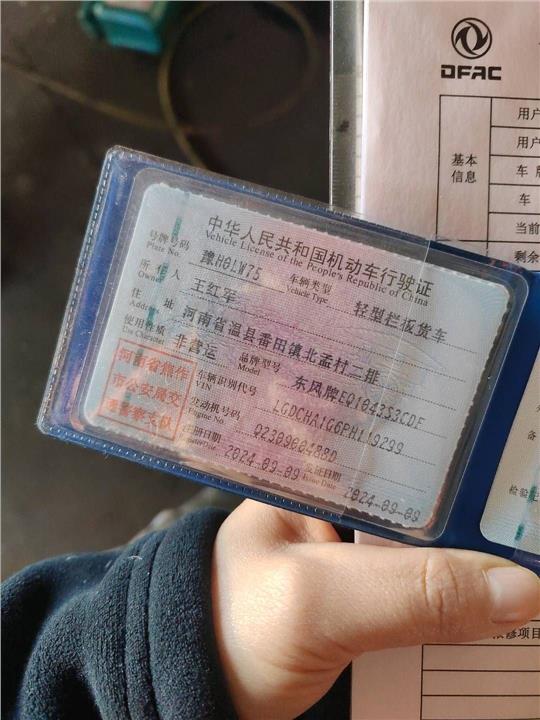 DFAC
基本
信息
用户
用户
车 牌
车
当前
剩余
中华人民共和国机动车行驶证
Vehicle License of the People's Republic of China
号牌号码 豫H0LW75 车辆类型 轻型栏板货车
Plate No. Vehicle Type
所 有 人 王红军
Owner
住 址 河南省温县番田镇北孟村二排
Address
使用性质 非营运 品牌型号 东风牌EQ1043S3CDF
Use Character Model
河南省焦作
市公安局交
通警察支队
车辆识别代号 LGDCHA1G6PH119299
VIN
发动机号码 Q23090048BD
Engine No.
注册日期 2024-09-09 发证日期 2024-09-09
Register Date Issue Date
备
检验记
维修项目